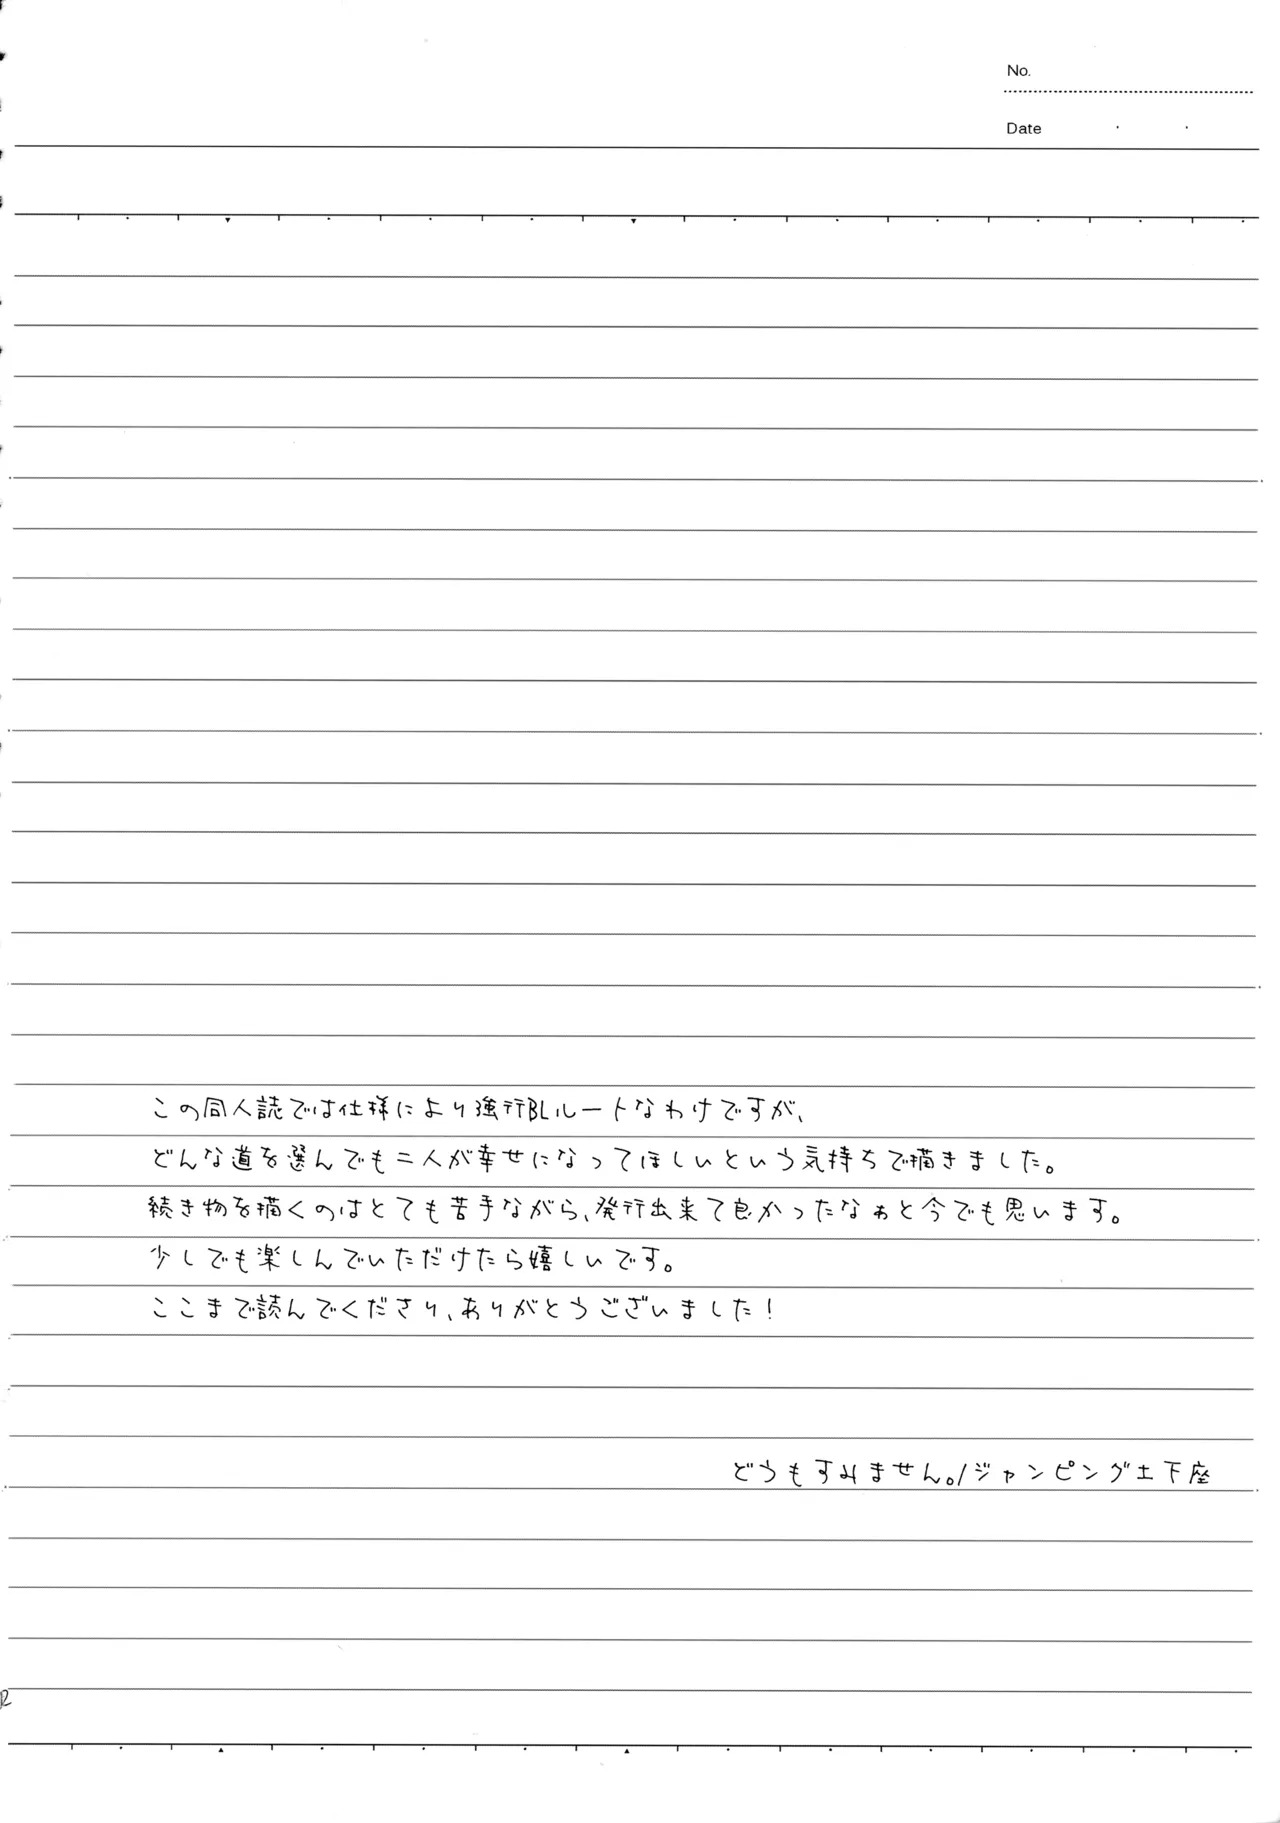 No.
Date
この同人誌では仕様により強行BLルートなわけですが、
どんな道を選んでも二人が幸せになってほしいという気持ちで描きました。
続き物を描くのはとても苦手ながら、発行出来て良かったなぁと今でも思います。
少しでも楽しんでいただけたら嬉しいです。
ここまで読んでくださり、ありがとうございました!
どうもすみません。/ジャンピング土下座